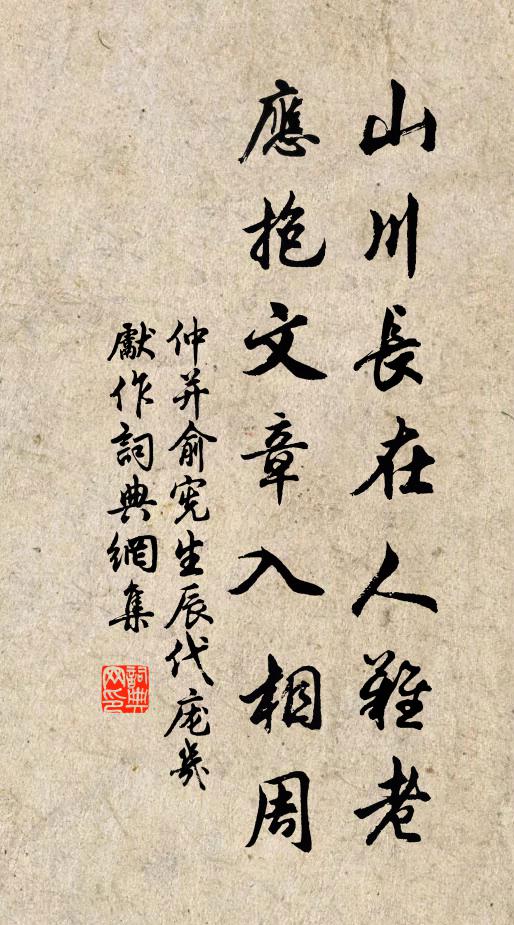 山川長在人難老
應抱文章入相周
仲并俞憲生辰代庞幾
獻作詞典網集
詞典
网印